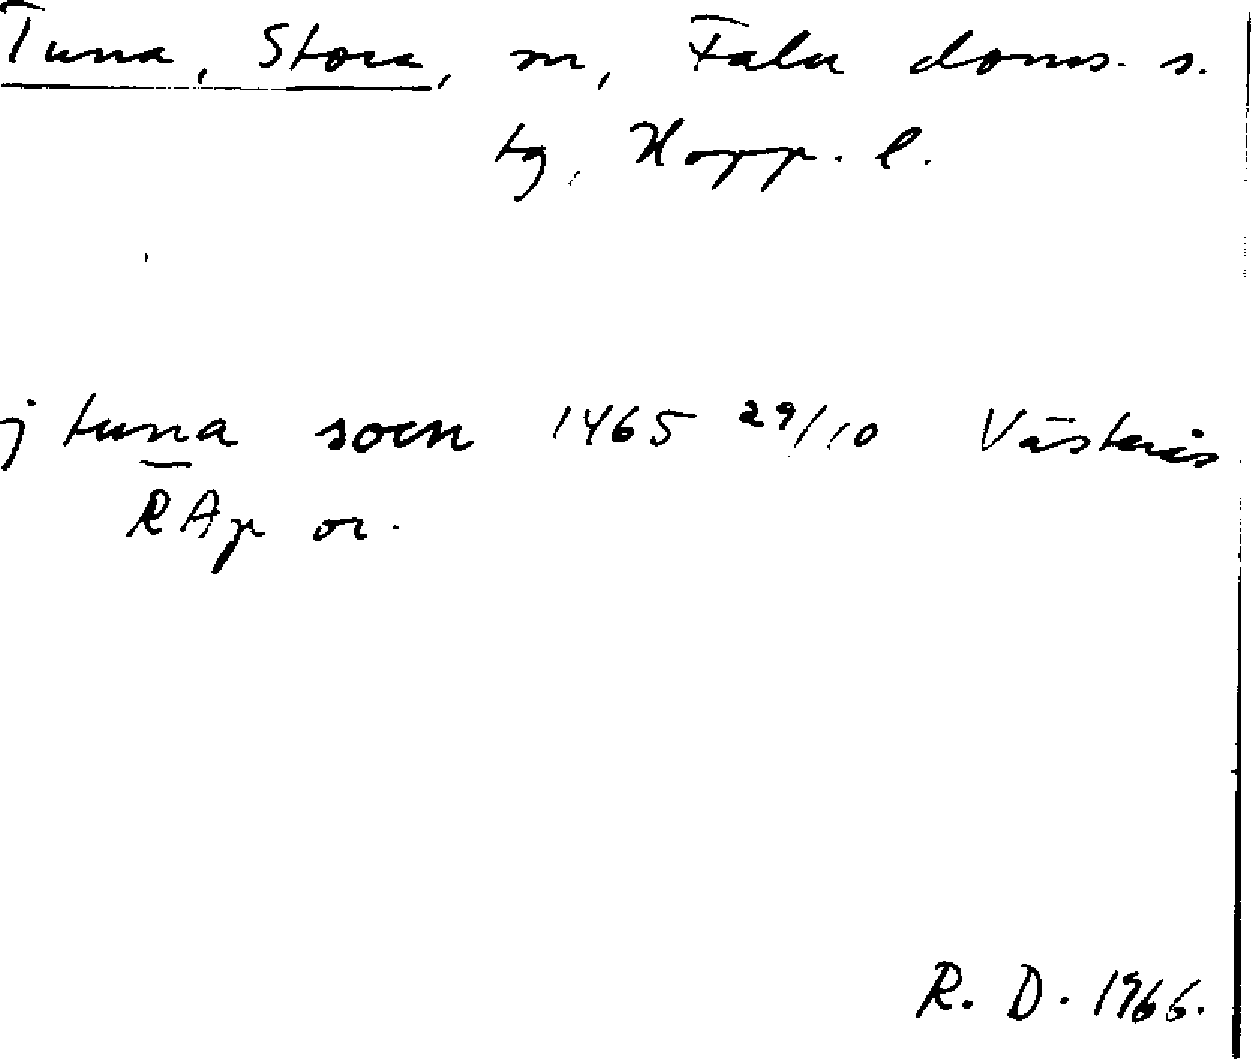 Tuna, Stora, sn, Falu doms. s.
tg, Kopp. l.
j tuna socn 1465 29/10 Västerås
RAp or.
R. D. 1966.